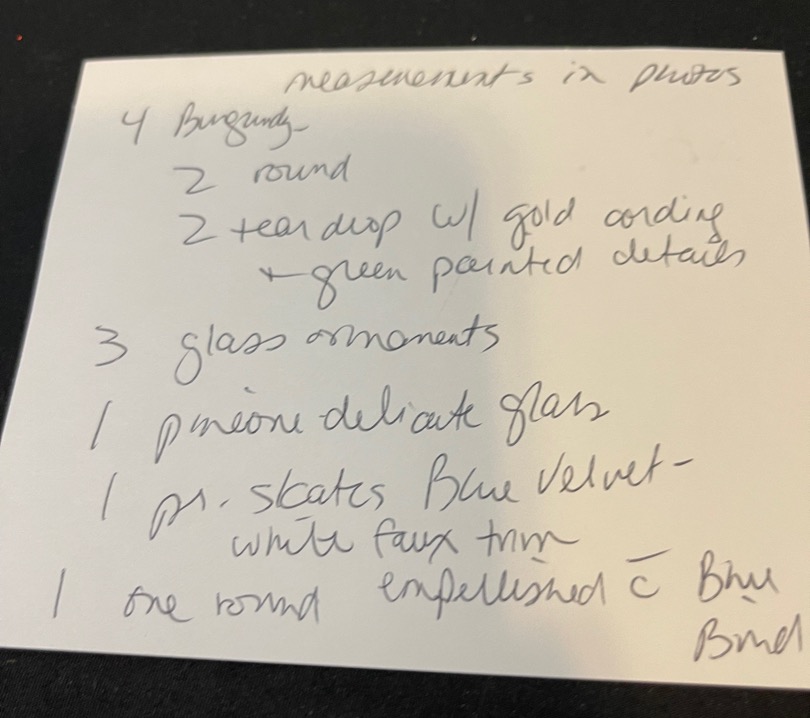 measurements in photos
4 Burgundy-
2 round
2 tear drop w/ gold cording
+ green painted details
3 glass ornaments
1 pinecone delicate glass
1 pr. skates Blue Velvet -
white faux trim
1 one round empellished c̄ Blue